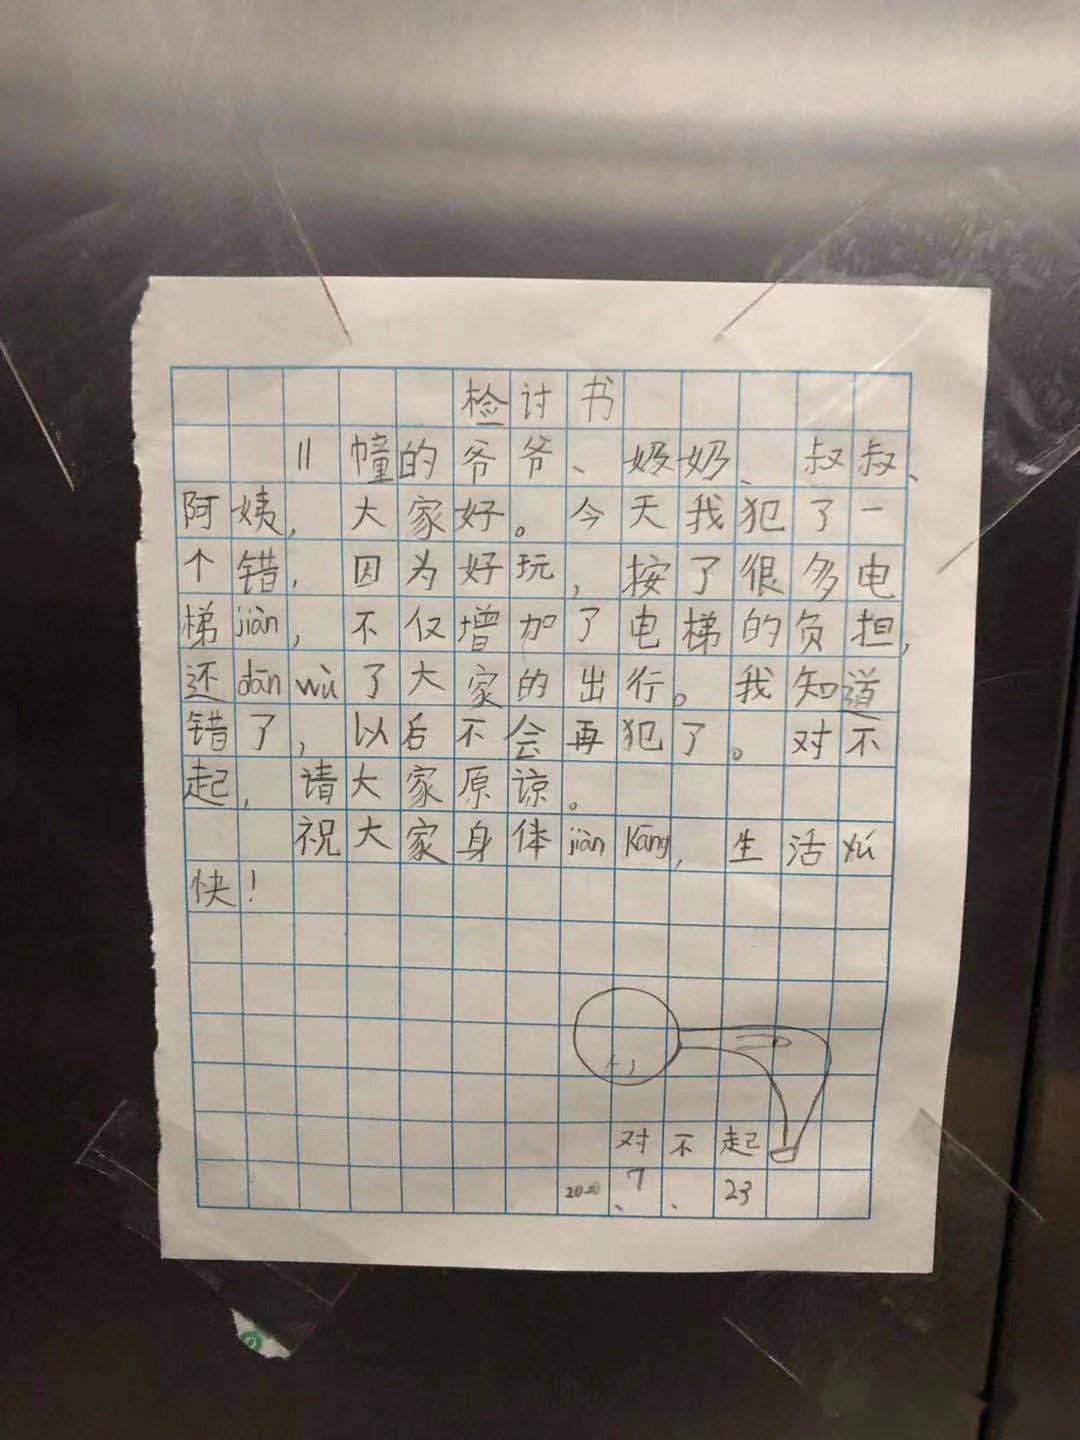 检讨书
11幢的爷爷、奶奶、叔叔、
阿姨,大家好。今天我犯了一
个错,因为好玩,按了很多电
梯jiàn,不仅增加了电梯的负担,
还dān wù了大家的出行。我知道
错了,以后不会再犯了。对不
起,请大家原谅。
祝大家身体jiàn Kāng,生活yú
快!
对不起
2020、7、23